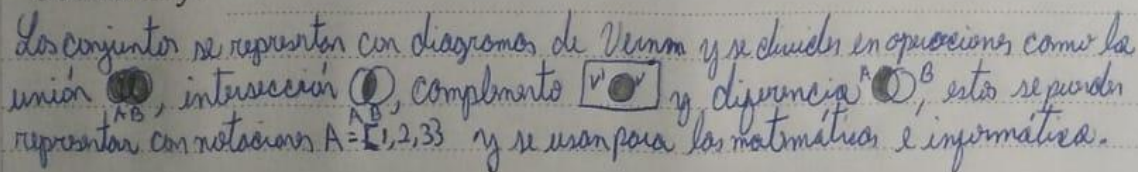 Los conjuntos se representan con diagramas de Vennm y se dividen en operaciones como la
unión A B, intersección A B, complemento V' V y diferencia A B, estos se pueden
representar con notaciones A = {1,2,3} y se usan para las matemáticas e informática.